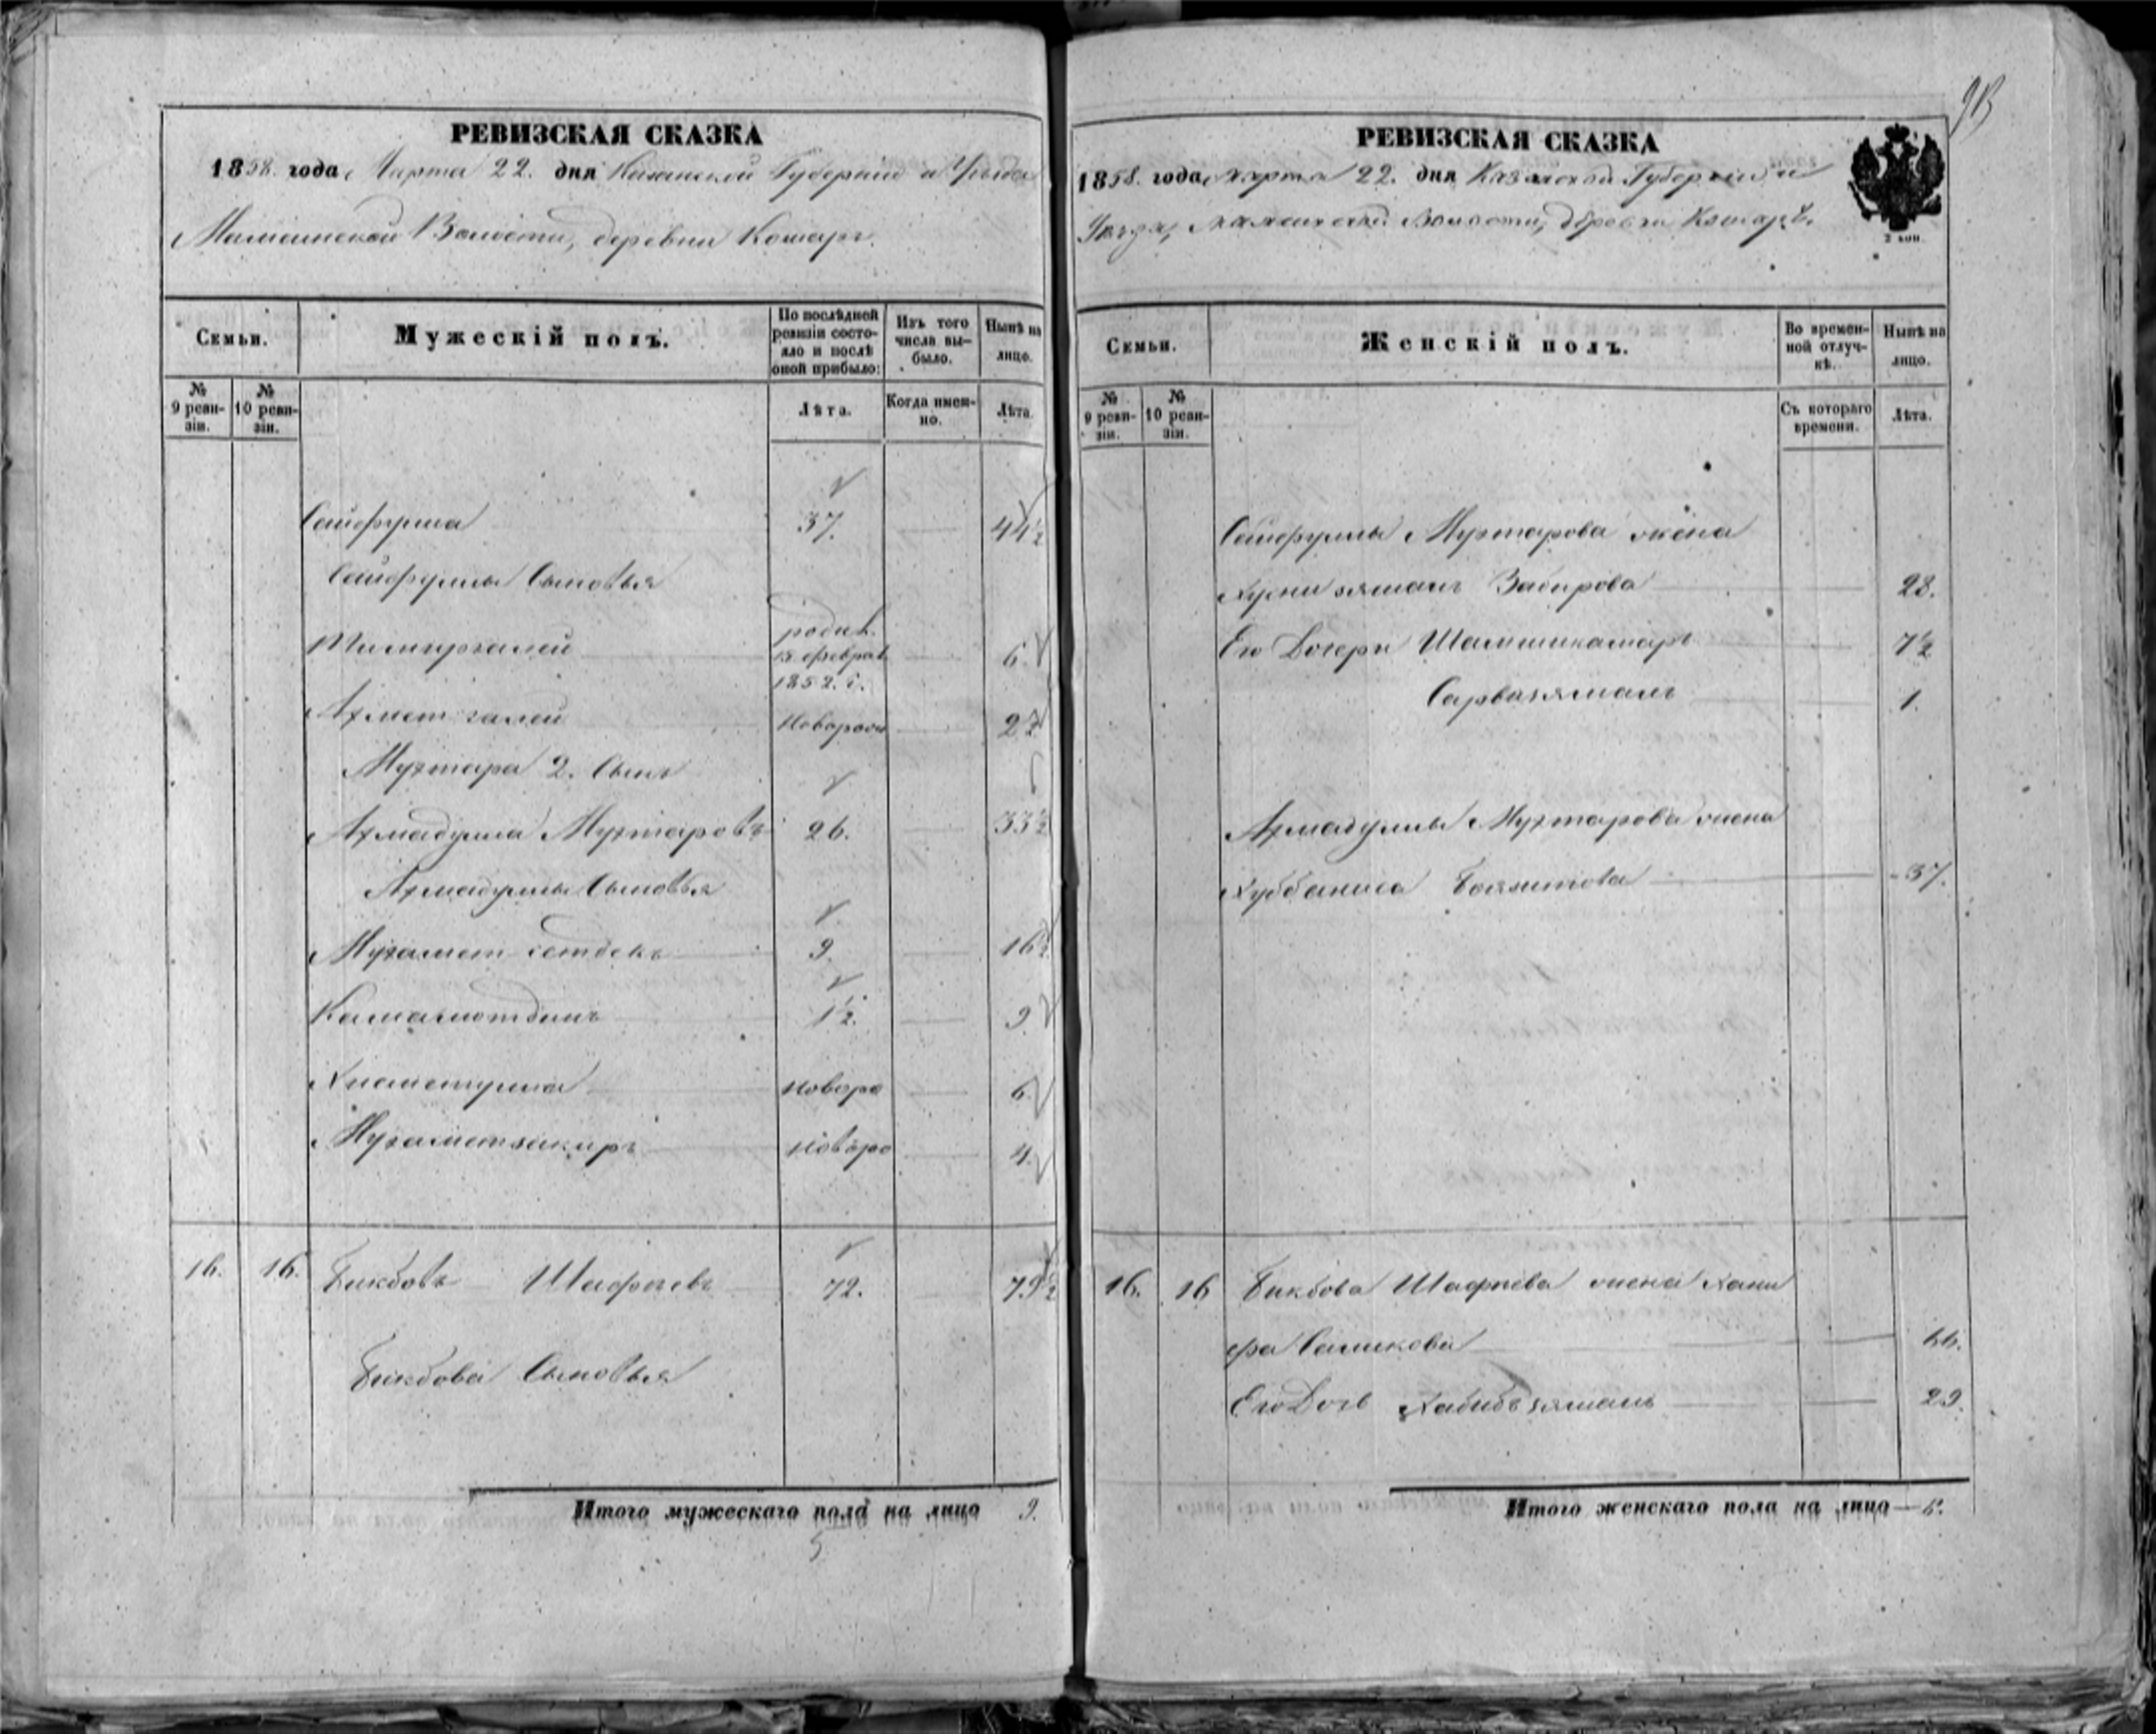 93
РЕВИЗСКАЯ СКАЗКА
1858. года Марта 22. дня Казанской Губерніи и Уѣзда
Мамсинской Волости, деревни Кошаръ.
Семьи.
Мужескій полъ.
По послѣдней ревизіи состояло и послѣ оной прибыло:
Изъ того числа выбыло.
Нынѣ на лицо.
№ 9 ревизіи.
№ 10 ревизіи.
Лѣта.
Когда именно.
Лѣта.
Сайфулла 37. 44½
Сайфуллы Сыновья
Тимиргалей родил. 15 феврал. 1852. г. 6.
Ахметгалей новорож 2½
Мухтара 2. Сынъ
Ахмадулла Мухтаровъ 26. 33½
Ахмадуллы Сыновья
Мухамет 9. 16½
Камалютдинъ 1½. 9.
Хисаметулла новоро 6.
Мухаметзакиръ новоро 4.
16. 16. Бикбовъ Шафѣевъ 72. 79½
Бикбова Сыновья
Итого мужескаго пола на лицо 9.
РЕВИЗСКАЯ СКАЗКА
1858. года марта 22. дня Казанской Губерніи и
Уѣзда, Мамсинской Волости, деревни Кошаръ.
2 коп.
Семьи.
Женскій полъ.
Во временной отлучкѣ.
Нынѣ на лицо.
№ 9 ревизіи.
№ 10 ревизіи.
Съ котораго времени.
Лѣта.
Сайфуллы Мухтарова жена
Забирова 28.
Его Дочери Шамшикамаръ 7½
Сарвизямалъ 1.
Ахмадуллы Мухтарова жена
Хуббаниса Баязитова 37.
16. 16 Бикбова Шафѣева жена Хани
фа Саликова 66.
Его Дочь Хабибзямалъ 29.
Итого женскаго пола на лицо — 6.